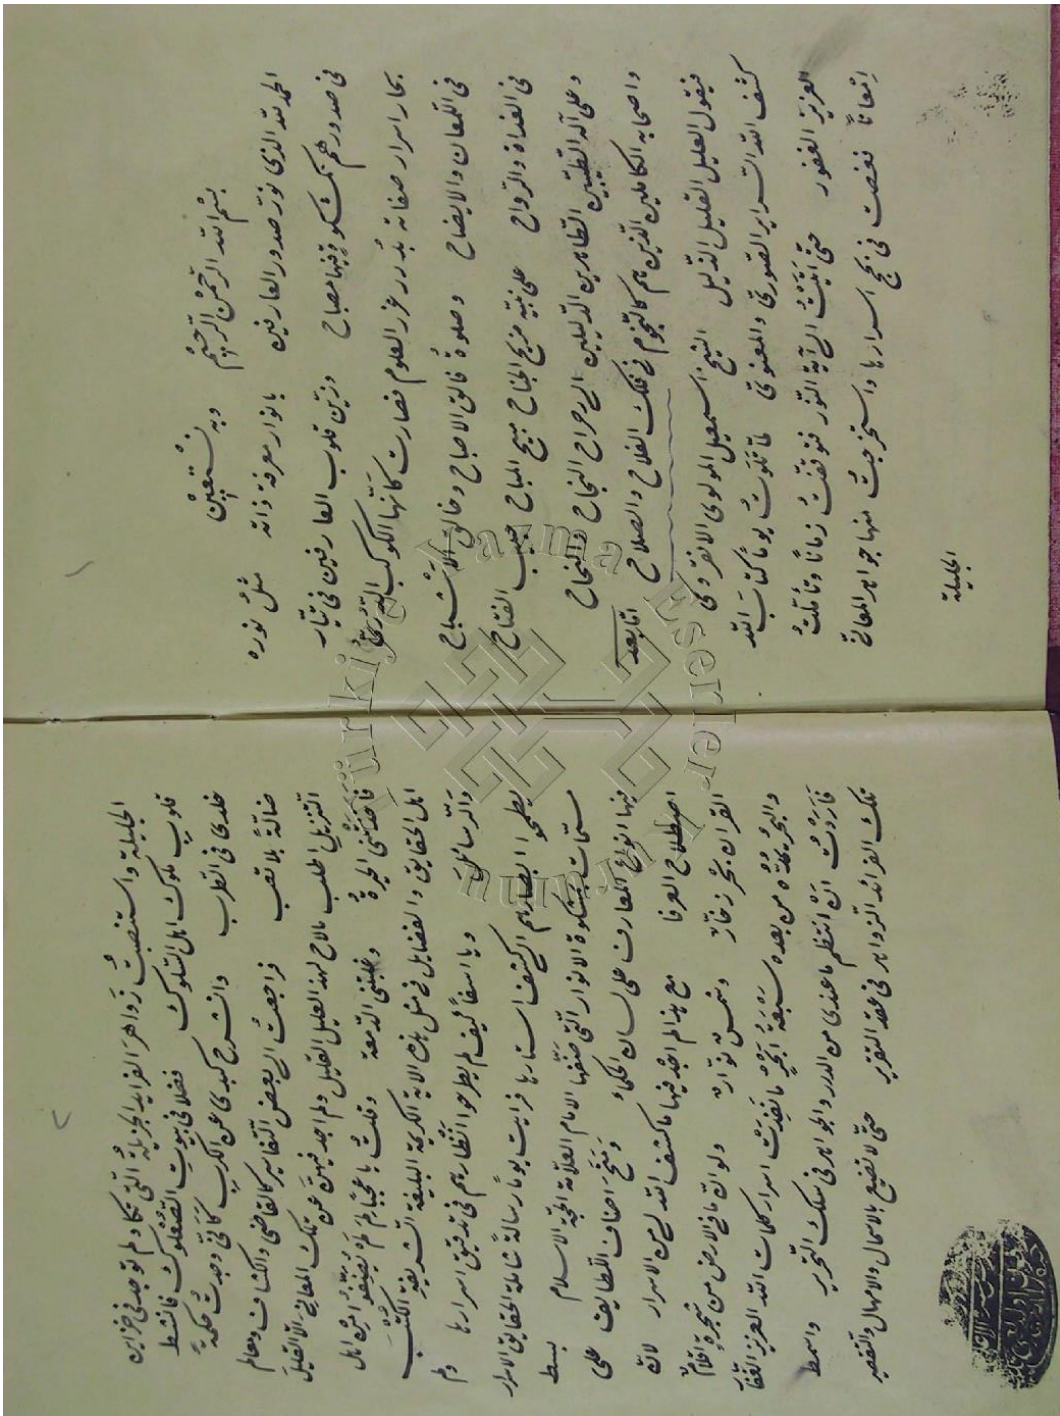 بسم الله الرحمن الرحيم وبه نستعين
الحمد لله الذى نور صدور العارفين بانوار معرفة ذاته مثل نوره
فى صدورهم كمشكوة فيها مصباح وزين قلوب العارفين فى تيار
بحار اسرار صفاته بدرر غرر العلوم فصارت كانّها الكوكب الدّرىّ
فى اللمعان والايضاح وصلوةُ فالق الاصباح وخالق الاشباح
فى الغداة والرواح على نبيّه مزيح الجناح مبيح المباح حبيب الفتاح
وعلى آله الطيبين الطاهرين الدليلين الى رحراح النجاح والنجاح
واصحابه الكاملين الذين هم كالنجوم فى فلك الفلاح والصلاح امّا بعد
فيقول العليل القليل الذليل الشيخ اسمعيل المولوى الانقروى
كشف الله السراير الصّورىّ والمعنوىّ لمّا تلوتُ يوماً كتاب الله
العزيز الغفور حتّى اتيتُ الى آية النّور فتوقفتُ زماناً وتأمّلتُ
اِتعاناً فغصت فى لجج اسرارها واستخرجتُ منها جواهر المعانى
الجليلة
الجليلة واستنصبتُ زواهرَ الفرايد الجزيلة التى تكاد لم توجد فى خزاين
قلوب ملوك اهل السّلوك فضلا فى بيوت الصّعلوك فانشط
خلدى فى الطرب وانشرح كبدى عن الكرب كَاَنّى وجدتُ حكمةً
ضالّةً بلا تعب فراجعتُ الى بعض التفاسير كالقاضى والكشاف ومعالم
التنزيل لطلب مالاح لهذا العليل القليل ولم اجد فيهنّ عن تلك المعانى الا القليل
فاخذتنى الحيرةُ وغلبتنى الدمعة وقلتُ يا عجباً لِمَ لَمْ يُصنّفُوا مِن اهل
اهل الحقايق والفضايل فى مثل هذه الاية الكريمة البليغة الشريفةِ الكتبَ
وَالرّسائلَ ويا اسفاً كيف لم يطرحوا انظارهم فى تدقيق اسرارها ولم
يطمحوا ابصارهم الى كشف استارها فرايت يوماً رسالةً شاملة الحقايق الاسرار
مسمّات بمشكوة الانوار التى صنّفها الامام العلامة الحجة الاسلام بسط
فيها انواع المعارف على لسان الحكماءِ ومنح اصناف اللطايف على
اصطلاح العرفا مع هذا لم اجد فيها ما كشف الله لى من الاسرار لانّ
القران بحرٌ زخّار وشمسٌ نوّار ولو انّ ما فى الارض من شجرة اقلامٌ
والبحرُ يمدّه من بعده سبعةُ ابحرٍ ما نفدت اسرار كلمات الله العزيز الغفّار
فاردتُ ان انتظم ما عندى من الدرر والجواهر فى سلك التحرير واسمط
تلك الفرائد الزواهر فى عقد التقرير حتّى لا تضيع بالاهمال والامهال والتقصير
Türkiye Yazma Eserler Kurumu